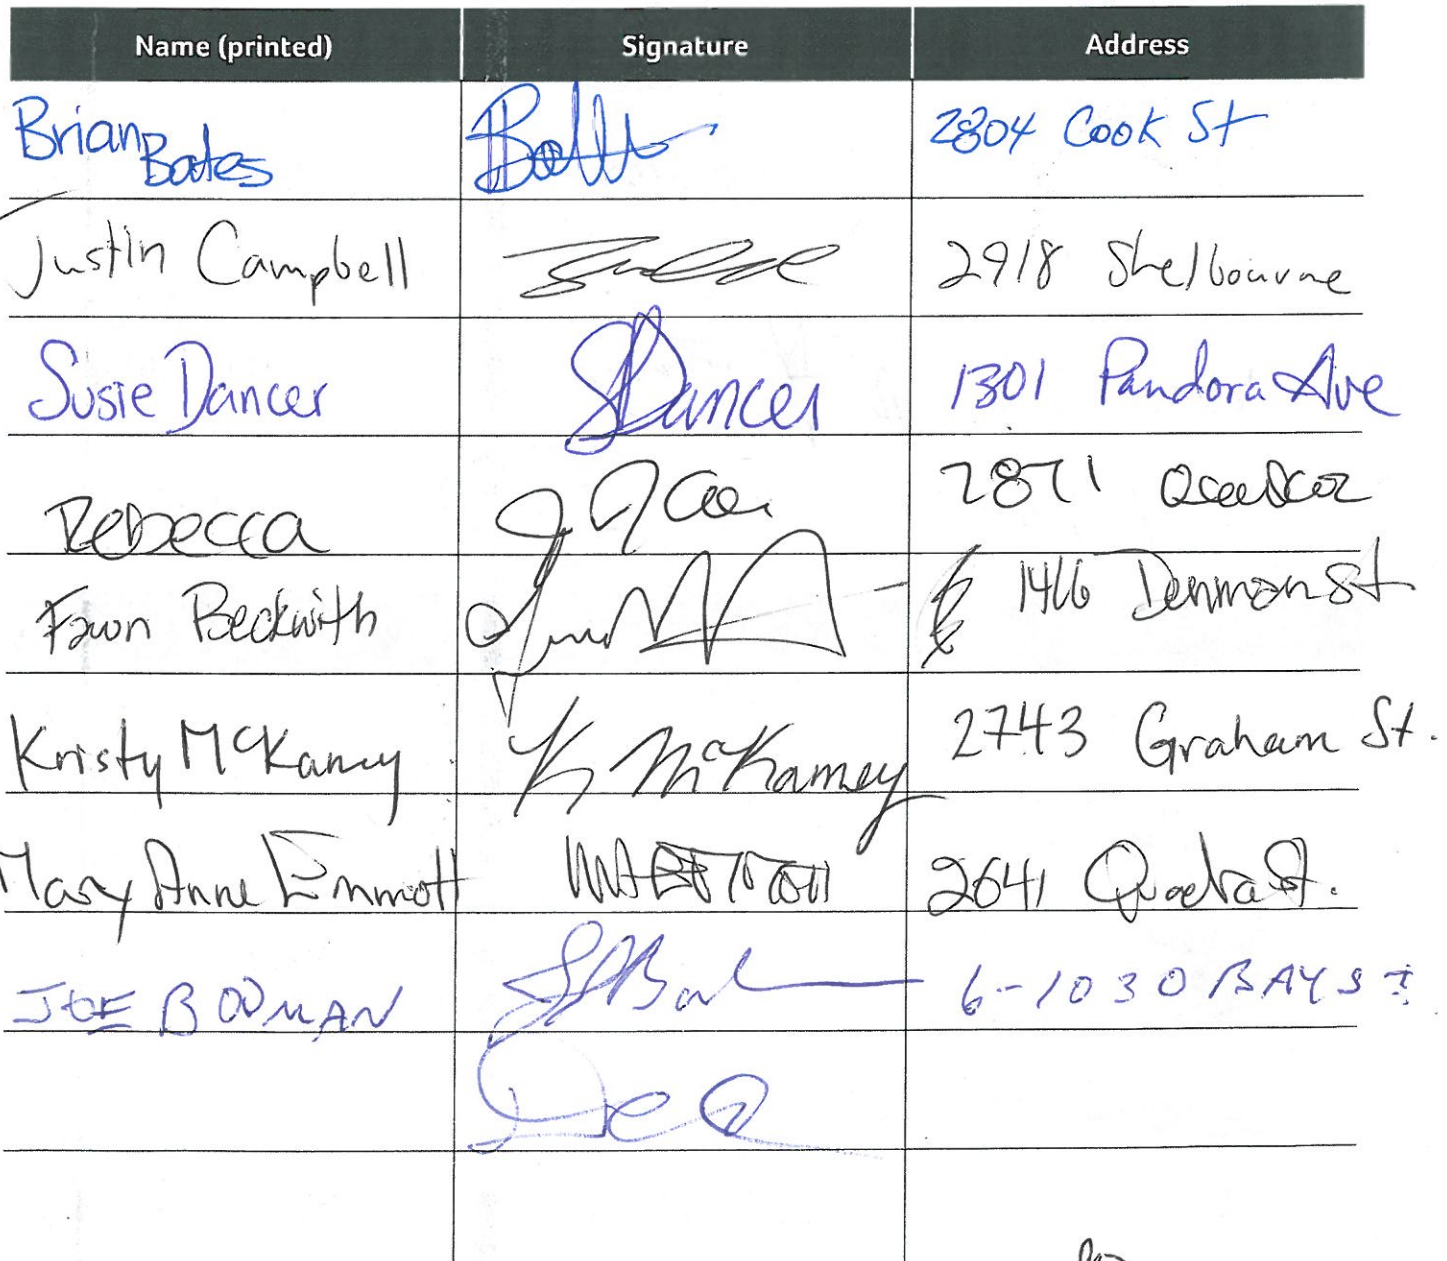 Name (printed) Signature Address
Brian Bates 2804 Cook St
Justin Campbell 2918 Shelbourne
Susie Dancer SDancer 1301 Pandora Ave
Rebecca 2871
Fawn Beckwith 1466 Denman St
Kristy McKamey K McKamey 2743 Graham St.
Mary Anne Emmott 2641 Quadra St.
JOE BOOMAN 6-1030 BAY ST